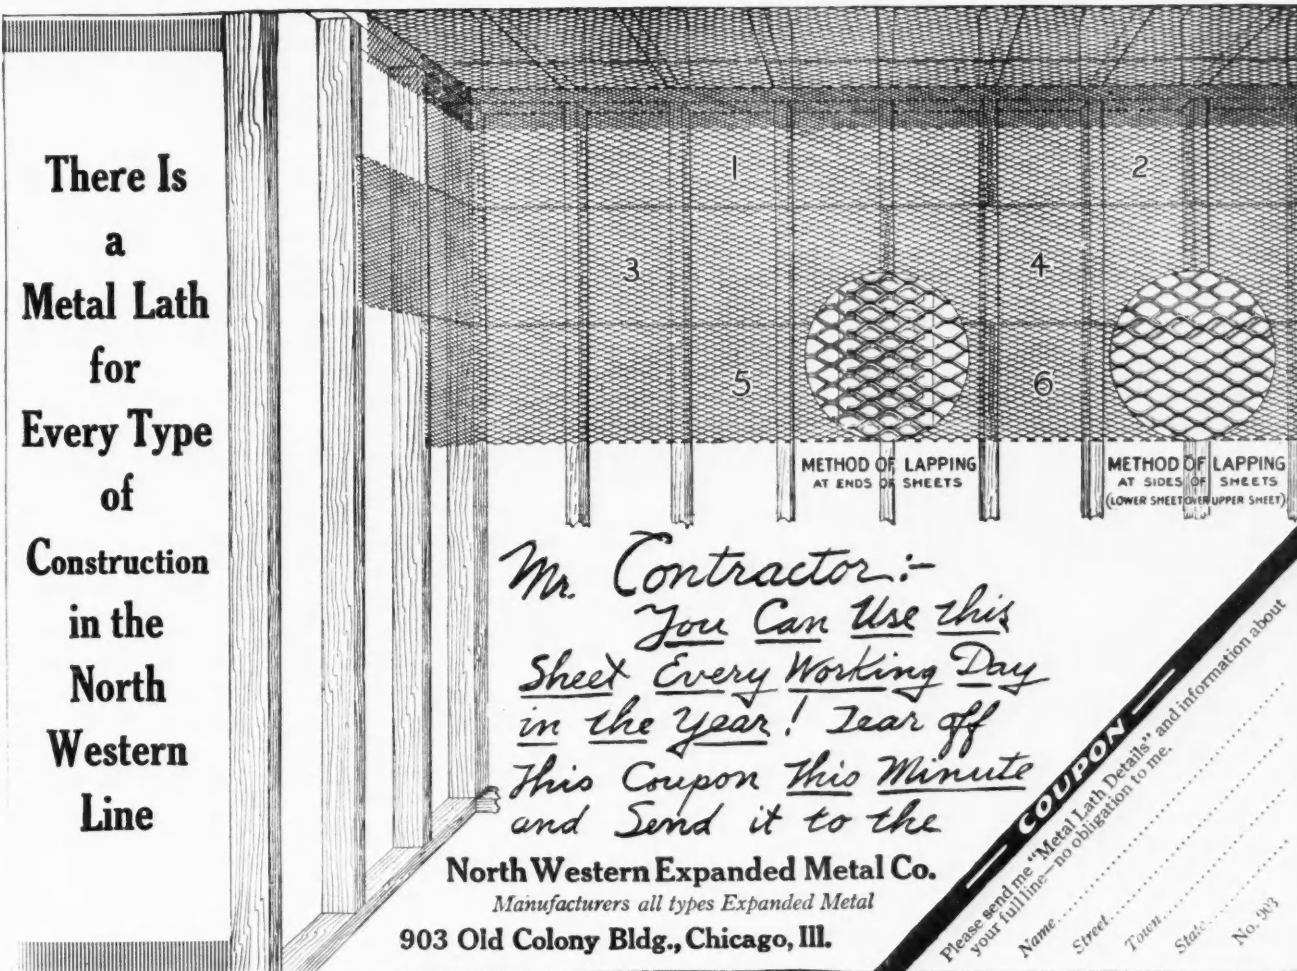 There Is
a
Metal Lath
for
Every Type
of
Construction
in the
North
Western
Line
1
2
3
4
5
6
METHOD OF LAPPING
AT ENDS OF SHEETS
METHOD OF LAPPING
AT SIDES OF SHEETS
(LOWER SHEET OVER UPPER SHEET)
Mr. Contractor:-
You Can Use this
Sheet Every Working Day
in the Year! Tear off
This Coupon this Minute
and Send it to the
North Western Expanded Metal Co.
Manufacturers all types Expanded Metal
903 Old Colony Bldg., Chicago, Ill.
COUPON
Please send me "Metal Lath Details" and information about
your full line—no obligation to me.
Name
Street
Town
State
No. 903